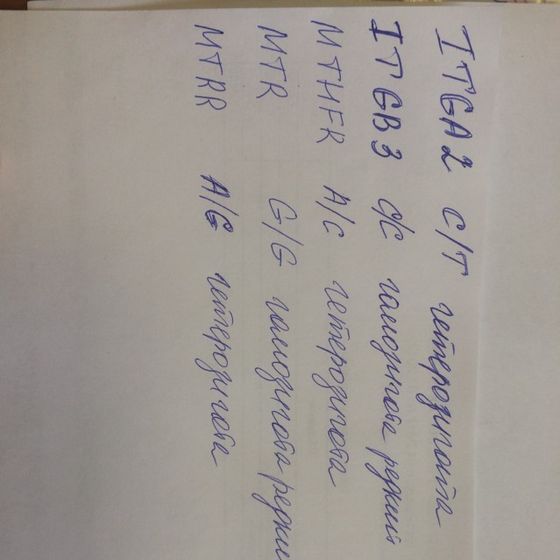 ITGA2 C/T гетерозигота
ITGB3 C/C гомозигота редкий
MTHFR A/C гетерозигота
MTR G/G гомозигота редки
MTRR A/G гетерозигота